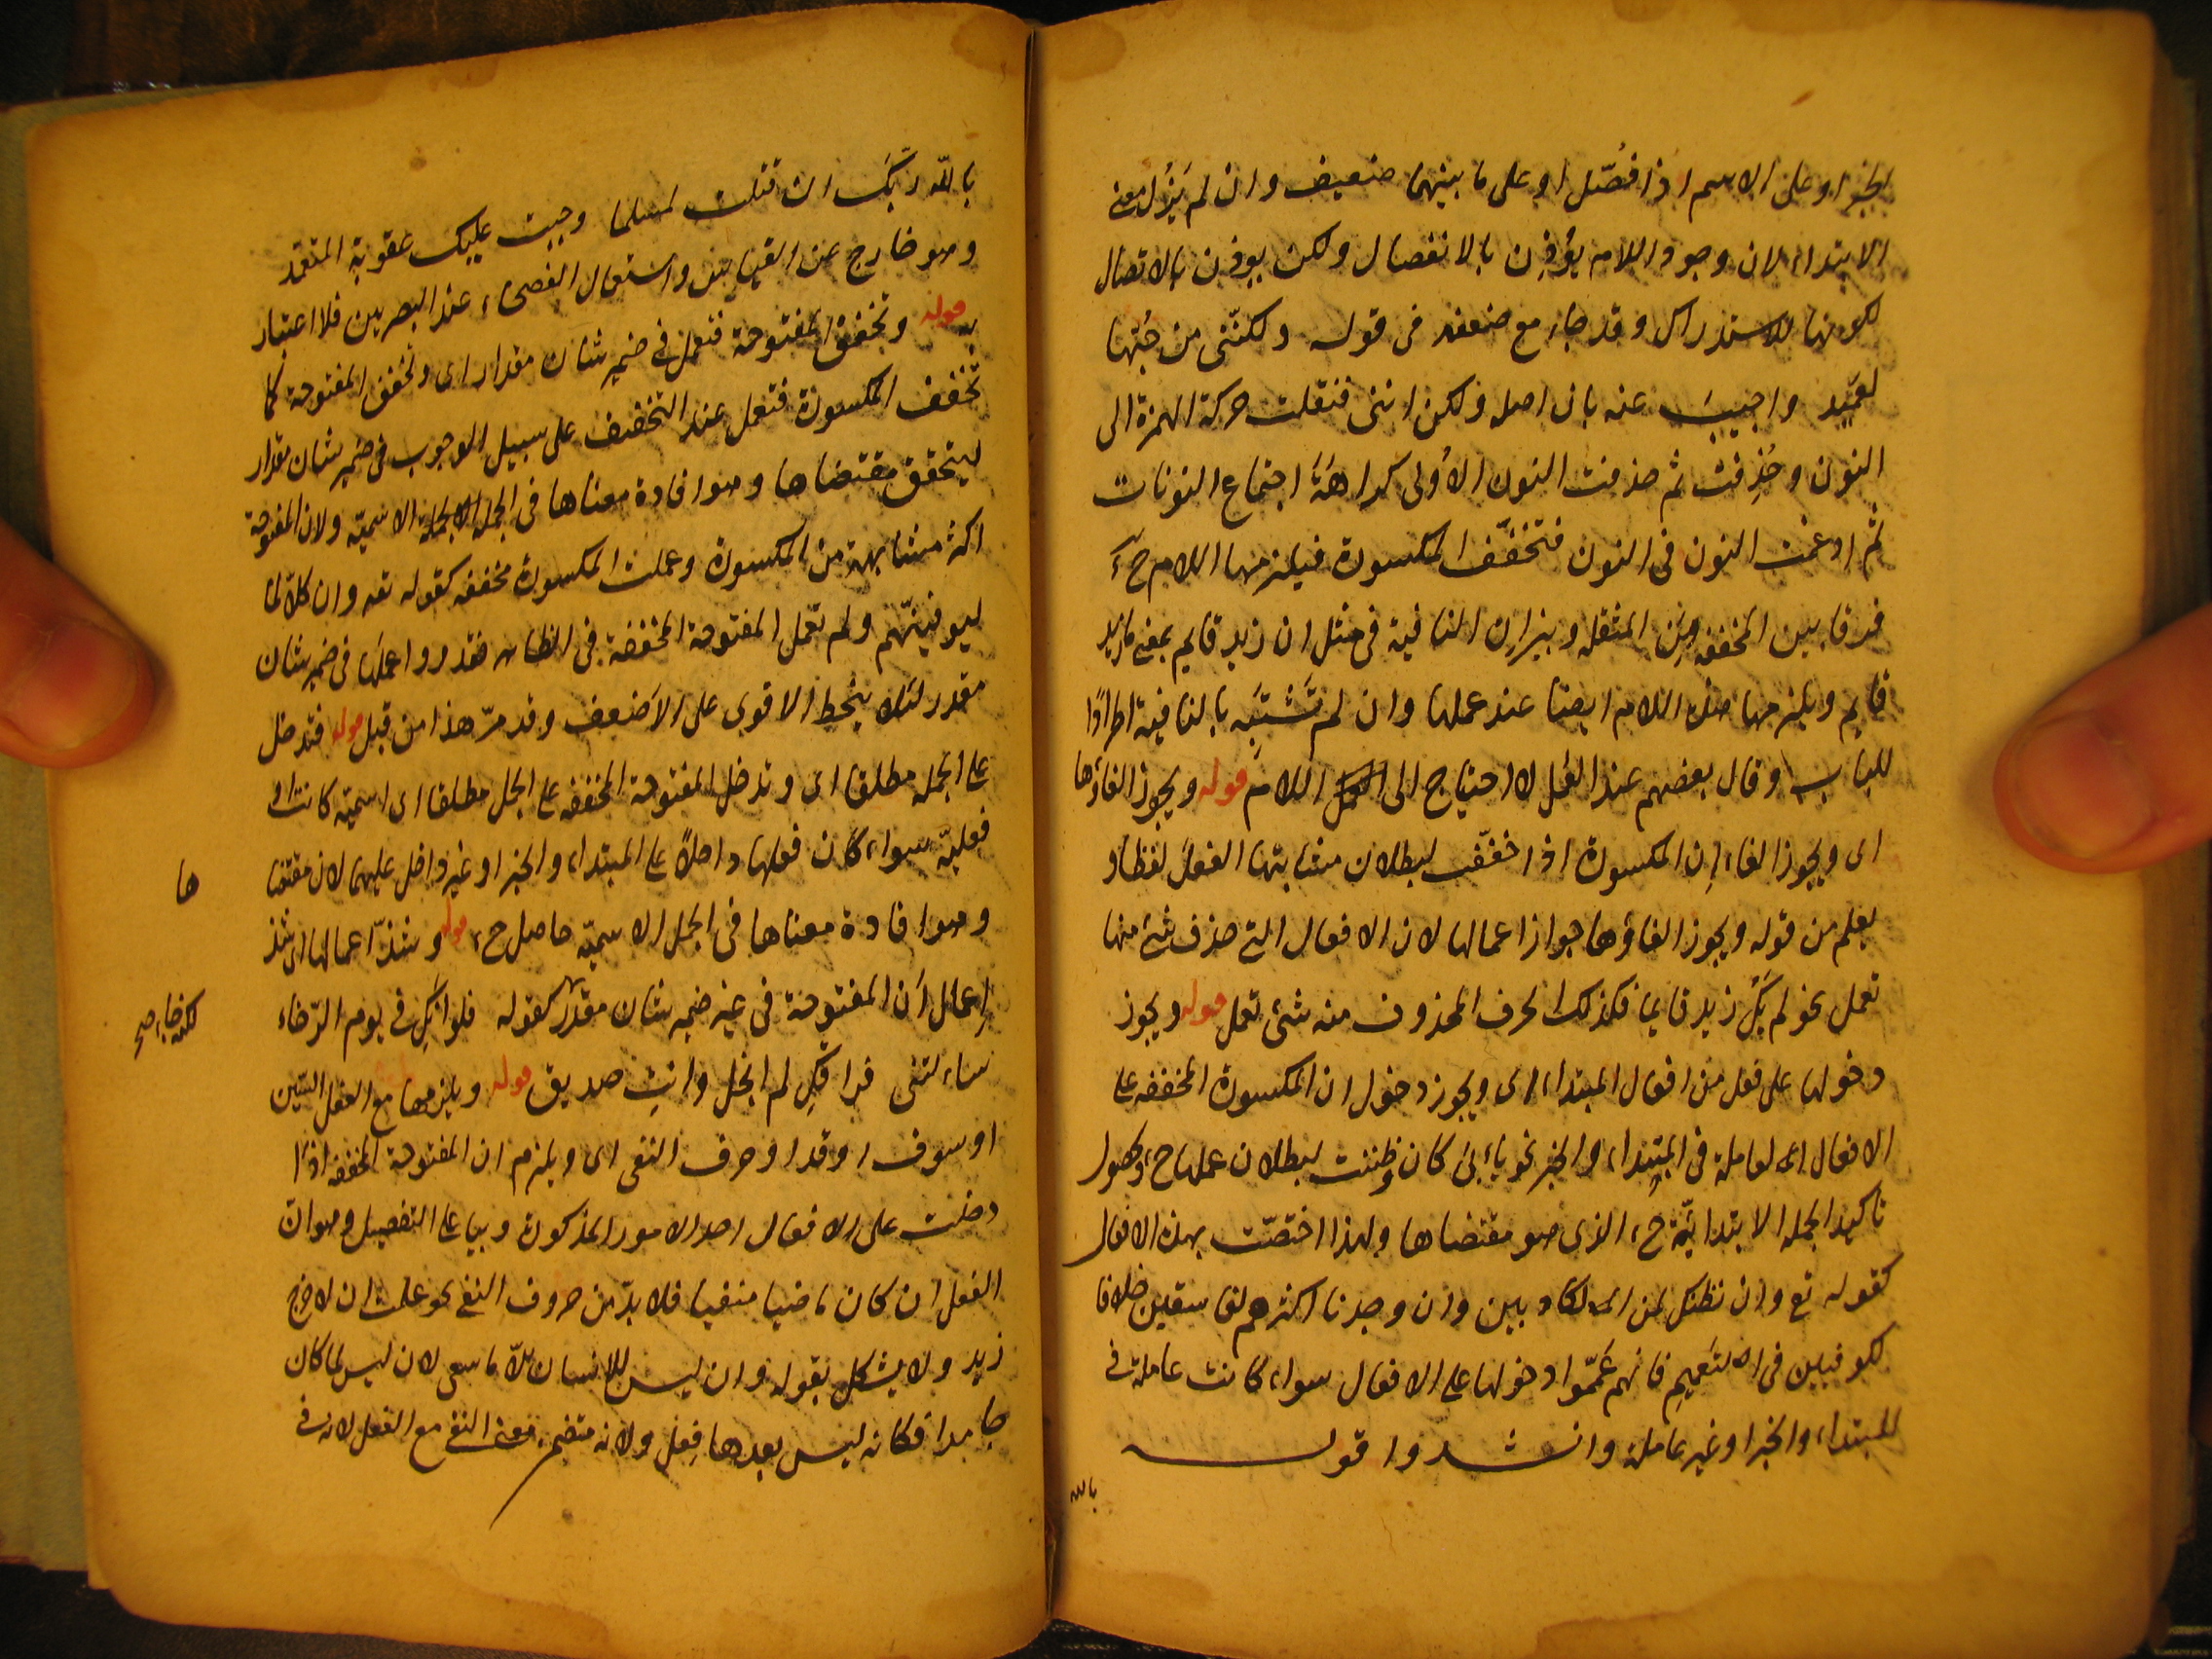 الخبر او على الاسم اذا فُصّل او على ما بينهما ضعيف وان لم يَزُل معنى
الابتداء لان وجود اللام يُؤذِن بالانفصال ولكن يوذن بالاتصال
لكونها للاستدراك وقد جاء مع ضعفه في قوله ولكنّنى من حُبّها
لعَمِيد واجيبَ عنه بان اصله ولكن اننى فنقلت حركة الهمزة الى
النون وحُذِفت ثم حذفت النون الأولى كراهَةَ اجتماع النونات
ثم ادغمت النون فى النون فتخفّف المكسورة فيلزمها اللام ح
فرقا بين المخففه مِن المثقله وبين ان النافية فى مثل ان زيد قايم بمعنى ما زيد
قايم ويلزمها هذه اللام ايضا عند عملها وان لم تَشتبِه بالنافية اطرادًا
للباب وقال بعضهم عند العمل لا احتياج الى اللام قوله ويجوز الغاؤها
اى ويجوز الغاء اِن المكسورة اذا خفّف لبطلان مشابهتها الفعل لفظا و
يعلم من قوله ويجوز الغاؤها جواز اعمالها لان الافعال التى حذف شئ منها
تعمل نحو لم يَكُ زيد قايما فكذلك الحرف المحذوف منه شئ تعمل قوله ويجوز
دخولها على فعل من افعال المبتداء اى ويجوز دخول ان المكسورة المخففه على
الافعال العاملة فى المبتداء والخبر نحو بابَىْ كان وظننت لبطلان عملها ح وحصول
تاكيد الجمله الابتدائيّة ح الذى هو مقتضاها ولهذا اختصّت بهذه الافعال
كقوله تع وان نظنك لمن الكاذبين وان وجدنا اكثرهم لفاسقين خلافا
للكوفيين فى التعميم فانهم عَمّموا دخولها على الافعال سواء كانت عاملة فى
المبتداء والخبر او غير عاملة وانشدوا قوله
بالله
بالله ربّكَ ان قتلت لمسلما وجبت عليك عقوبة المتعمد
وهو خارج عن القياس واستعمال الفصحاء عند البصريين فلا اعتبار
به قوله وتخفف المفتوحة فتعمل فى ضمير شان مقدار اى وتخفف المفتوحة كما
تخفف المكسورة فتعمل عند التخفيف على سبيل الوجوب فى ضمير شان مقدار
ليتحقق مقتضاها وهو افادة معناها فى الجملة الاسميّه ولان المفتوحة
اكثر مشابهة من المكسورة وعملت المكسورة مخففه كقوله تعه وان كلّا لما
ليوفينّهم ولم تعمل المفتوحة المخففة فى الظاهر فقدروا عملها فى ضمير شان
مقدر لئلا ينحط الاقوى على الاَضعف وقد مرّ هذا من قبل قوله فتدخل
على الجمله مطلقا اى وتدخل المفتوحة المخففه على الجمل مطلقا اى اسميّه كانت او
فعليّه سواء كان فعلها داخلاً على المبتداء والخبر او غير داخل عليهما لان مقتضا
ها
وهو افادة معناها فى الجمل الاسميّه حاصل ح قوله وشذّ اعمالها اى شذ
اِعمال اَن المفتوحة فى غير ضمير شان مقدّر كقوله فلو انكِ فى يوم الرّخاء
ساءلتنى فراقكِ لم ابخل وانتِ صديق قوله ويلزمها مع الفعل السّين
او سوف او قد او حرف النفى اى ويلزم ان المفتوحة المخففه اذا
دخلت على الافعال احد الامور المذكورة وبيا على التفصيل وهو ان
الفعل ان كان ماضيا منفيا فلا بدّ من حروف النفى نحو علمت ان لا خرج
زيد ولا يشكل بقوله وان ليس للانسان الّا ما سعى لان ليس لما كان
جامدا فكانه ليس بعدها فِعل ولانه متضمن معنى النفى مع الفعل لانه فى